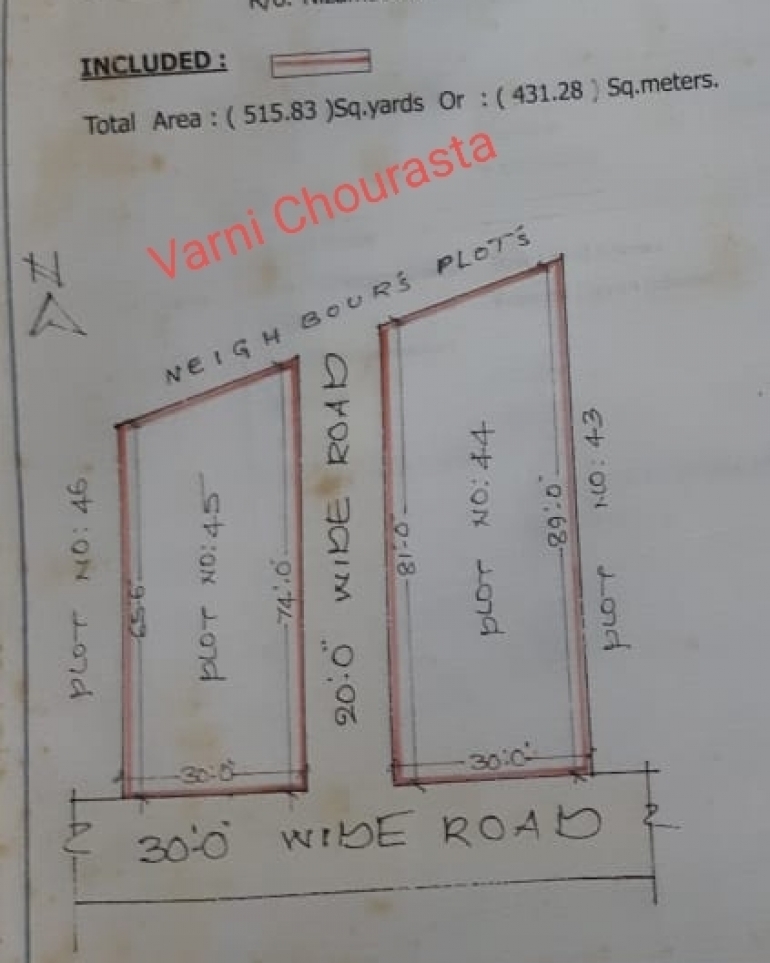 INCLUDED :
Total Area : ( 515.83 )Sq.yards Or : ( 431.28 ) Sq.meters.
Varni Chourasta
N
NEIGHBOUR'S PLOT'S
PLOT NO: 46
65'6"
PLOT NO: 45
74'.0"
20'.0" WIDE ROAD
81'-0"
PLOT NO: 44
89'.0"
PLOT NO: 43
30'.0"
30'.0"
30'.0" WIDE ROAD